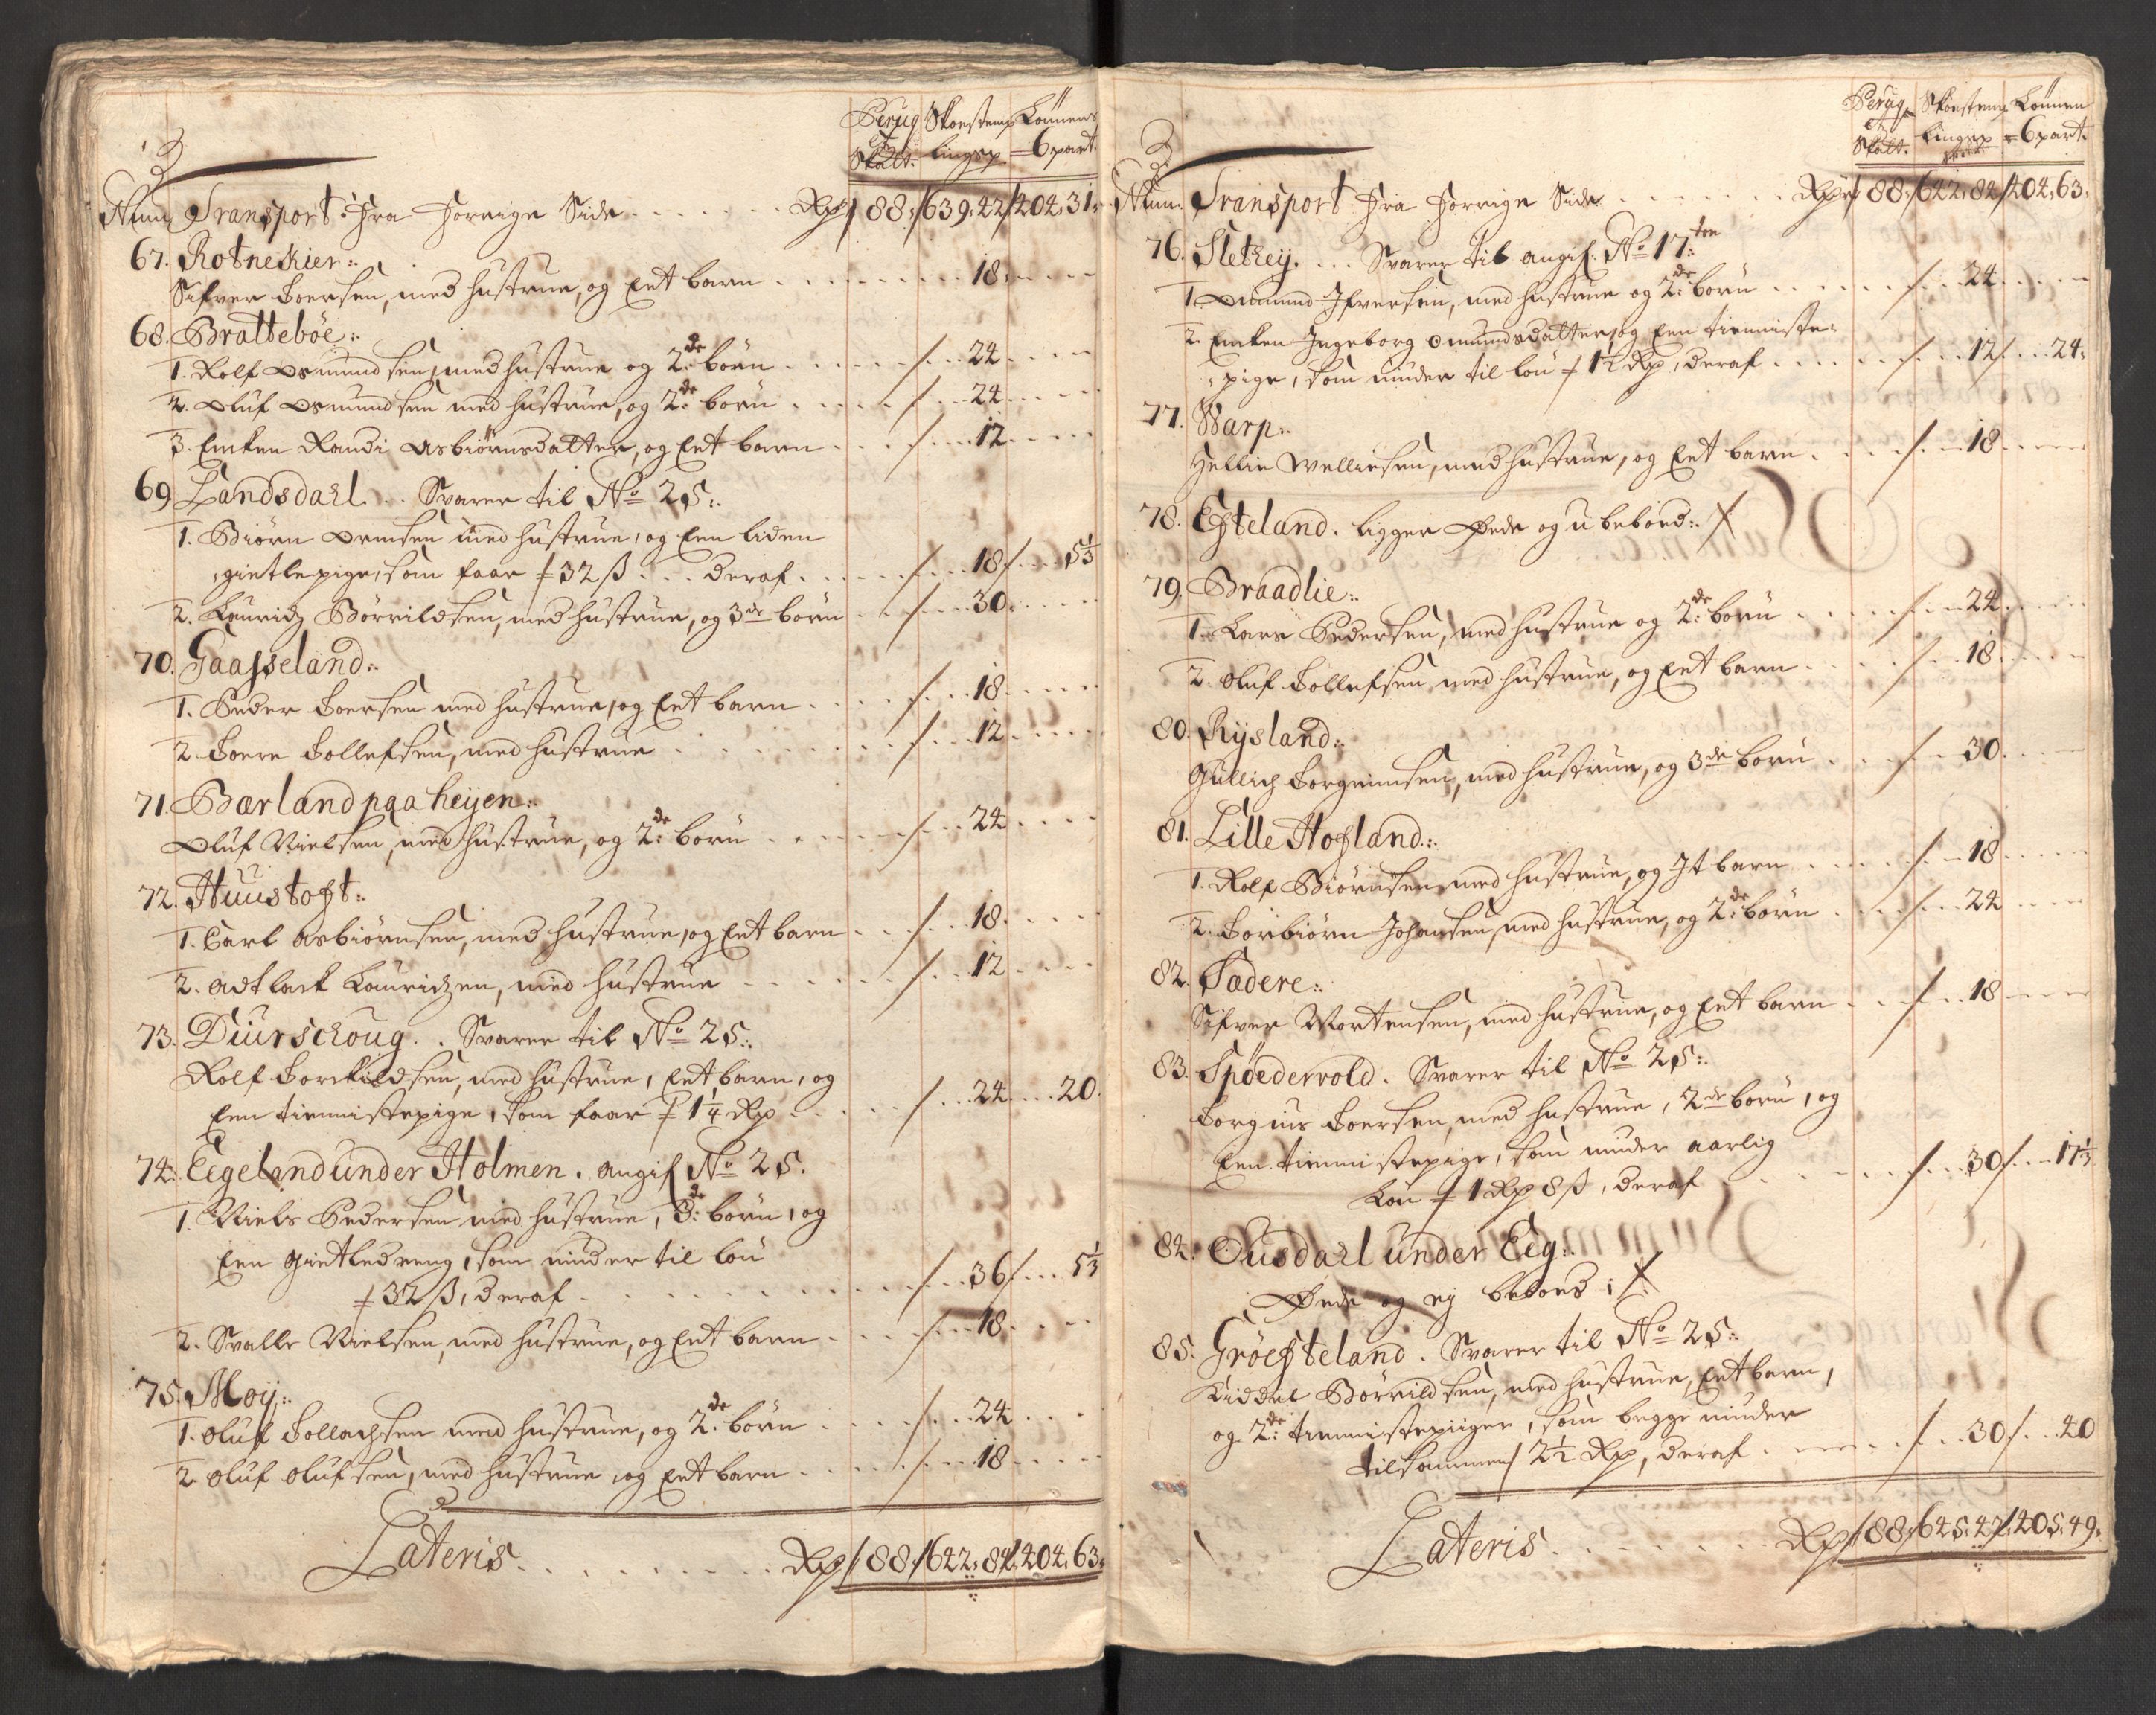 Peruq Skoestemp Lönnens
Skatt. lingsp = 6 part.
Num Transport. Fra Forrige Side . . . . . . Rp 88. 639. 42 404. 31.
67. Rotnekier:
Sifver Toersen, med hustrue, og Eet barn . . . . 18.
68. Brattebøe:
1. Rolf Osmundsen, med hustrue og 2de börn . . . 24
2. Oluf Osmundsen med hustrue, og 2de börn . . . 24
3. Encken Randi Asbiörnsdatter, og Eet barn . . . 12
69. Landsdahl. . . Svarer til No 25:
1. Biörn Ormsen med hustrue, og Een liden
gietlepige, som faar 32 ß . . . deraf . . . 18 . . . 5 1/3
2. Lauridz Börrildsen, med hustrue, og 3de börn . . . 30.
70. Gaasseland:
1. Peder Toersen med hustrue, og Eet barn . . . 18
2. Toere Tollefsen, med hustrue . . . 12
71. Bærland paa heyen:
Oluf Nielsen, med hustrue, og 2de börn . . . 24
72. Huustoft:
1. Carl Asbiörnsen, med hustrue, og Eet barn . . . 18.
2. Adtlack Lauridzen, med hustrue . . . 12
73. Diurschoug. . Svarer til No 25:
Rolf Torkildsen, med hustrue, Eet barn, og
Een tiennistepige, som faar 1 1/4 Rp . . . 24 . . . 20.
74. Eegeland under Holmen. angif No 25.
1. Niels Pedersen med hustrue, 3de börn, og
Een gietledreng, som nyder til lön
32 ß, deraf . . . 36 . . . 5 1/3
2. Svalle Nielsen, med hustrue, og Eet barn . . . 18
75. Moij:
1. Oluf Tollachsen med hustrue, og 2de börn . . . 24
2. Oluf Olufsen, med hustrue, og Eet barn . . . 18
Lateris . . . . . Rp 88. 642. 84 404. 63.
Peruq Skoestemp Lönnen
Skatt. lingsp = 6 part.
Num. Transport Fra Forrige Side . . . . . Rp 88. 642. 84 404. 63.
76. Slethey. . . . Svarer til angif. No 17: ten
1. Omund Ifversen, med hustrue og 2de börn . . . 24
2. Encken Ingeborg Omundsdatter, og Een tienniste=
pige, som nyder til lön 1 1/2 Rp, deraf . . . 12 . . . 24.
77. Warp:
Hellie Welliesen, med hustrue, og Eet barn . . . 18
78. Efteland. ligger Øede og ubeboed:
79. Braadlie:
1. Lars Pedersen, med hustrue og 2de börn . . . 24.
2. Oluf Tollefsen, med hustrue, og Eet barn . . . 18
80. Rijsland:
Gullich Torgrimsen, med hustrue, og 3de börn . . . 30.
81. Lille Hofland:
1. Rolf Biörnsen, med hustrue, og It barn . . . 18
2. Torbiörn Johansen, med hustrue, og 2de börn . . . 24
82. Tadere:
Sifver Mortensen, med hustrue, og Eet barn . . . 18
83. Spöedervold. Svarer til No 25:
Torgius Toersen, med hustrue, 2de börn, og
Een tiennistepige, som nyder aarlig
Lön 1 Rp 8 ß, deraf . . . 30 . . . 17 1/3
84. Ousdahl under Eeg:
Øede og ej beboed:
85. Gröefteland. Svarer til No 25:
Kiddel Börrildsen, med hustrue, Eet barn,
og 2de tiennistepiiger, som begge nyder
tilsammen 2 1/2 Rp, deraf . . . 30 . . . 40
Lateris . . . . . Rp 88. 645. 42 405. 49.